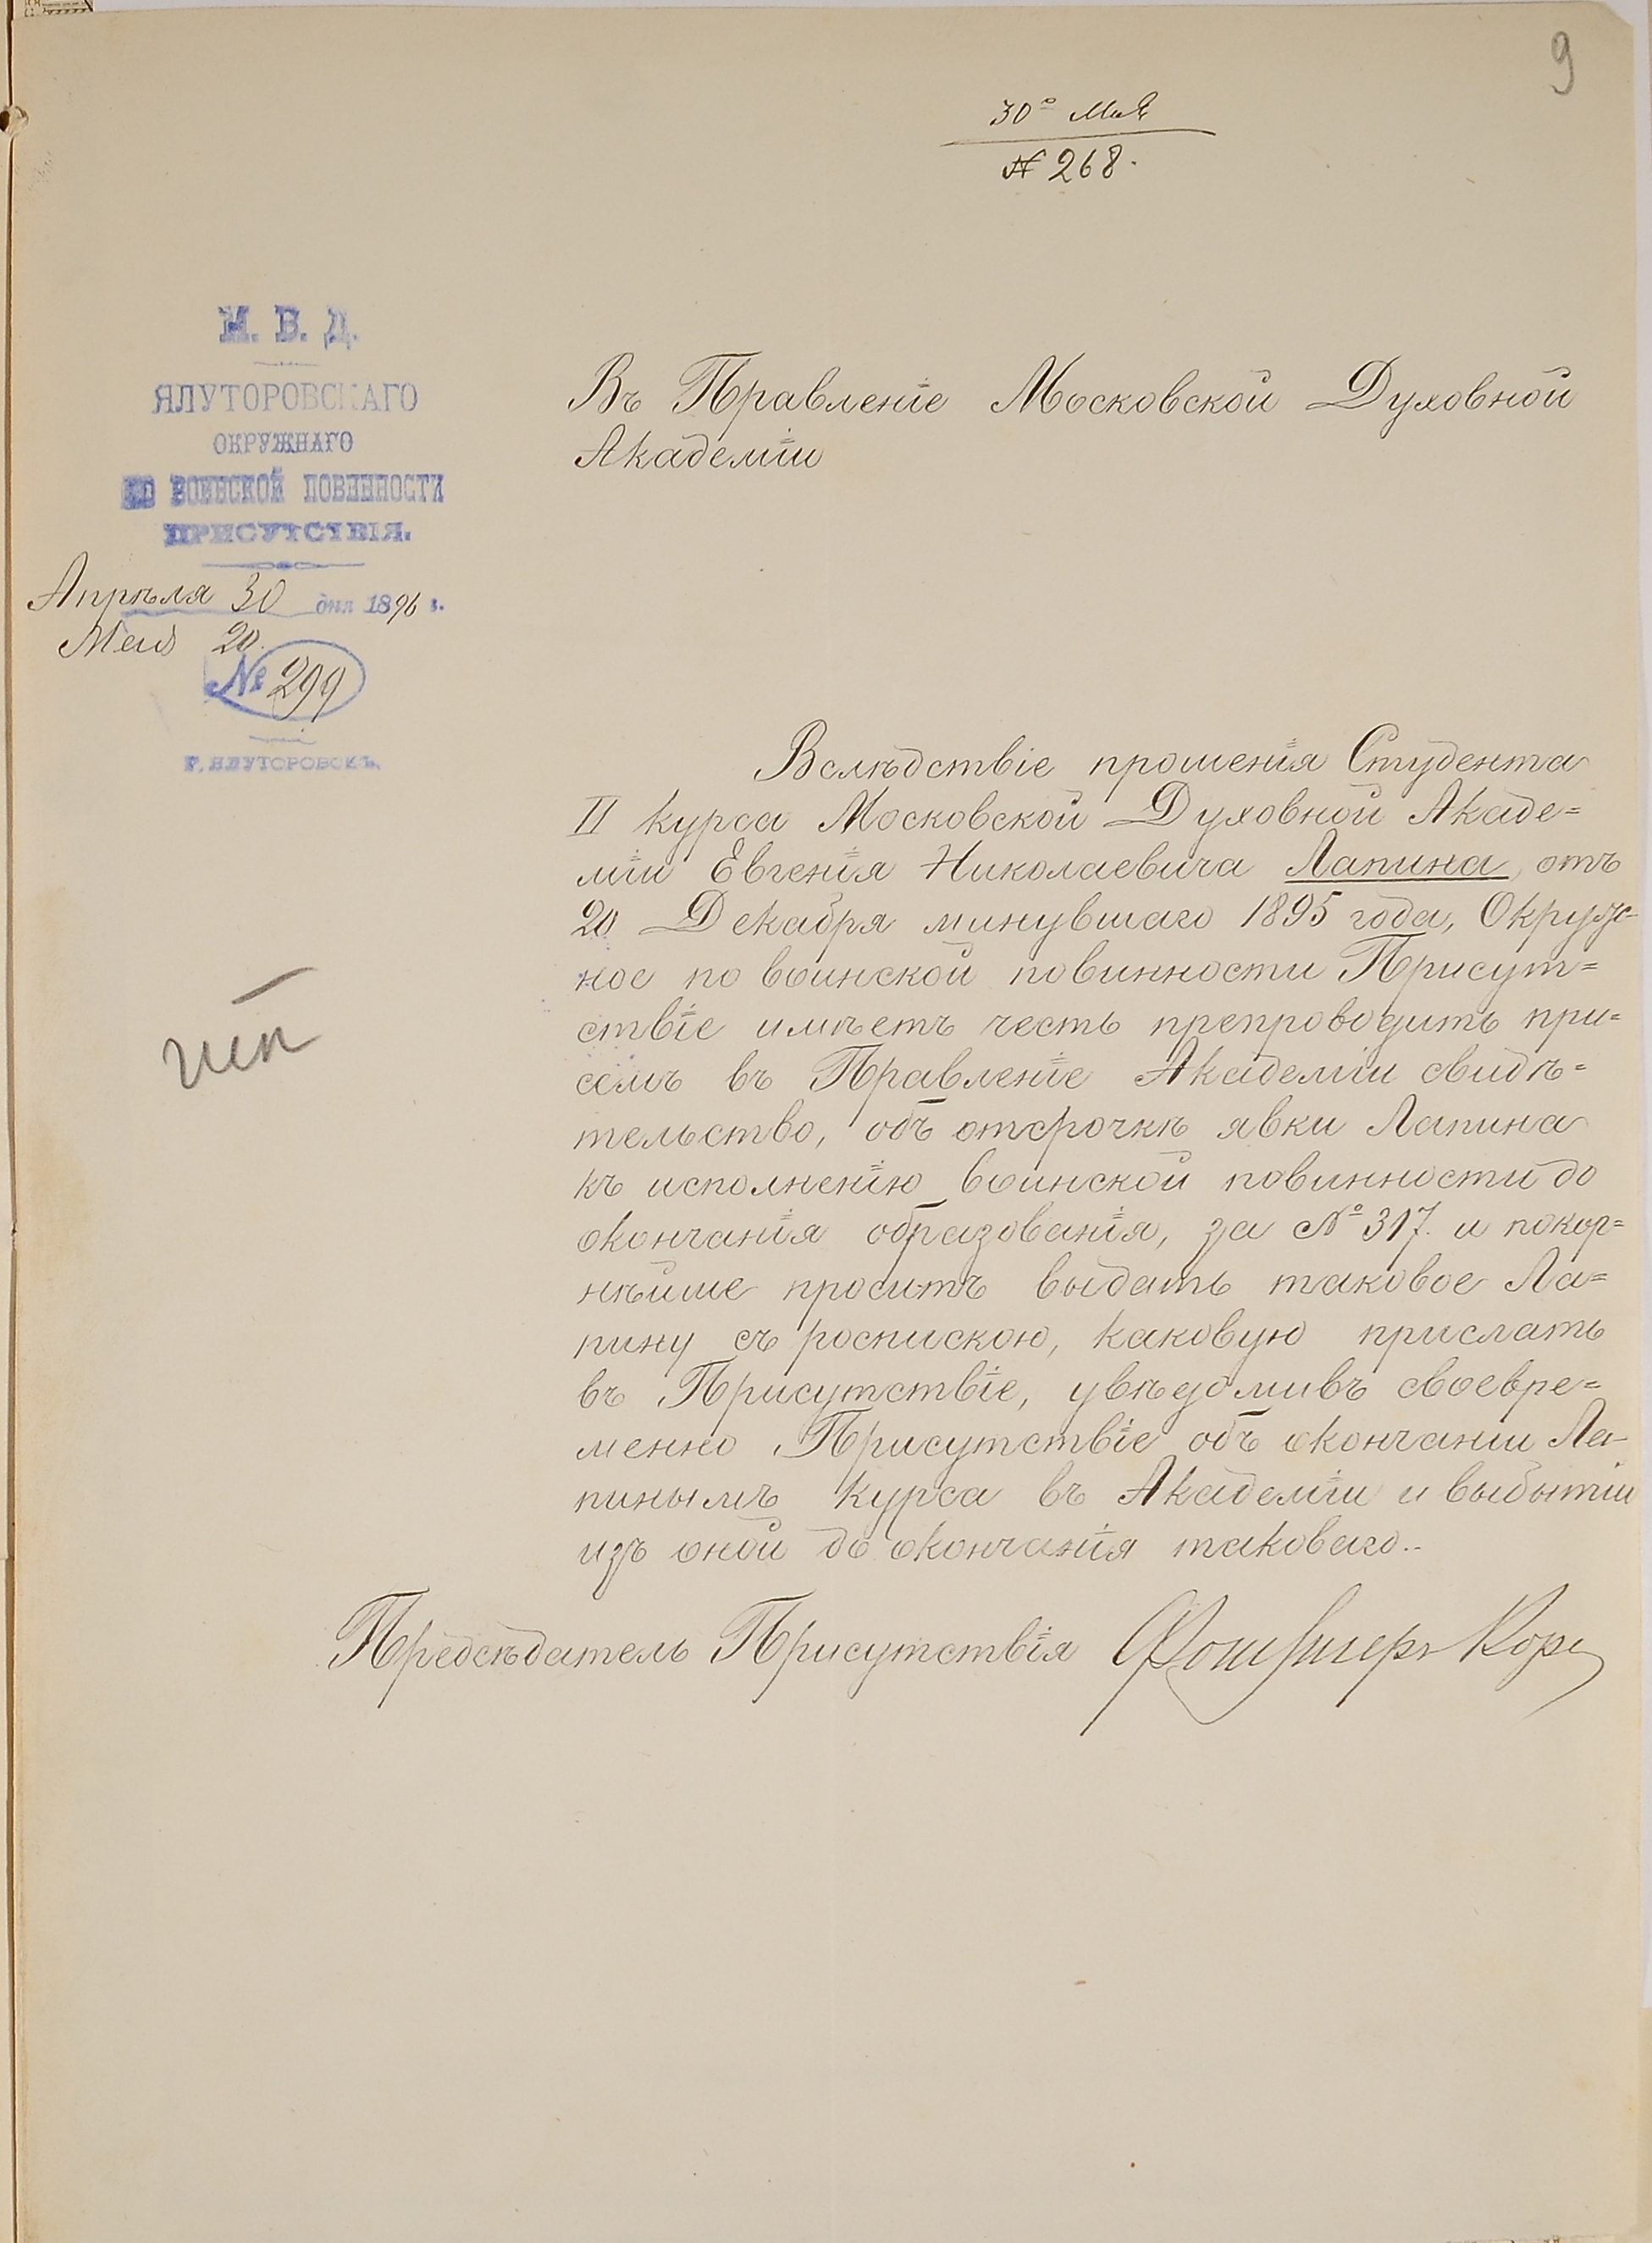 9
30° Мая
№ 268.
М. В. Д.
ЯЛУТОРОВСКАГО
ОКРУЖНАГО
ПО ВОИНСКОЙ ПОВИННОСТИ
ПРИСУТСТВІЯ.
Апрѣля 30 дня 1896 г.
Мая 20.
№ 299
Г. ЯЛУТОРОВСКЪ.
Въ Правленіе Московской Духовной
Академіи
Вслѣдствіе прошенія Студента
II курса Московской Духовной Акаде=
міи Евгенія Николаевича Лапина, отъ
20 Декабря минувшаго 1895 года, Окруж-
ное по воинской повинности Присут=
ствіе имѣетъ честь препроводить при=
семъ въ Правленіе Академіи свидѣ=
тельство, объ отсрочкѣ явки Лапина
къ исполненію воинской повинности до
окончанія образованія, за № 317. и покор=
нѣйше проситъ выдать таковое Ла=
пину съ роспискою, каковую прислать
въ Присутствіе, увѣдомивъ своевре=
менно Присутствіе объ окончаніи Ла-
пинымъ курса въ Академіи и выбытіи
изъ оной до окончанія таковаго..
Предсѣдатель Присутствія